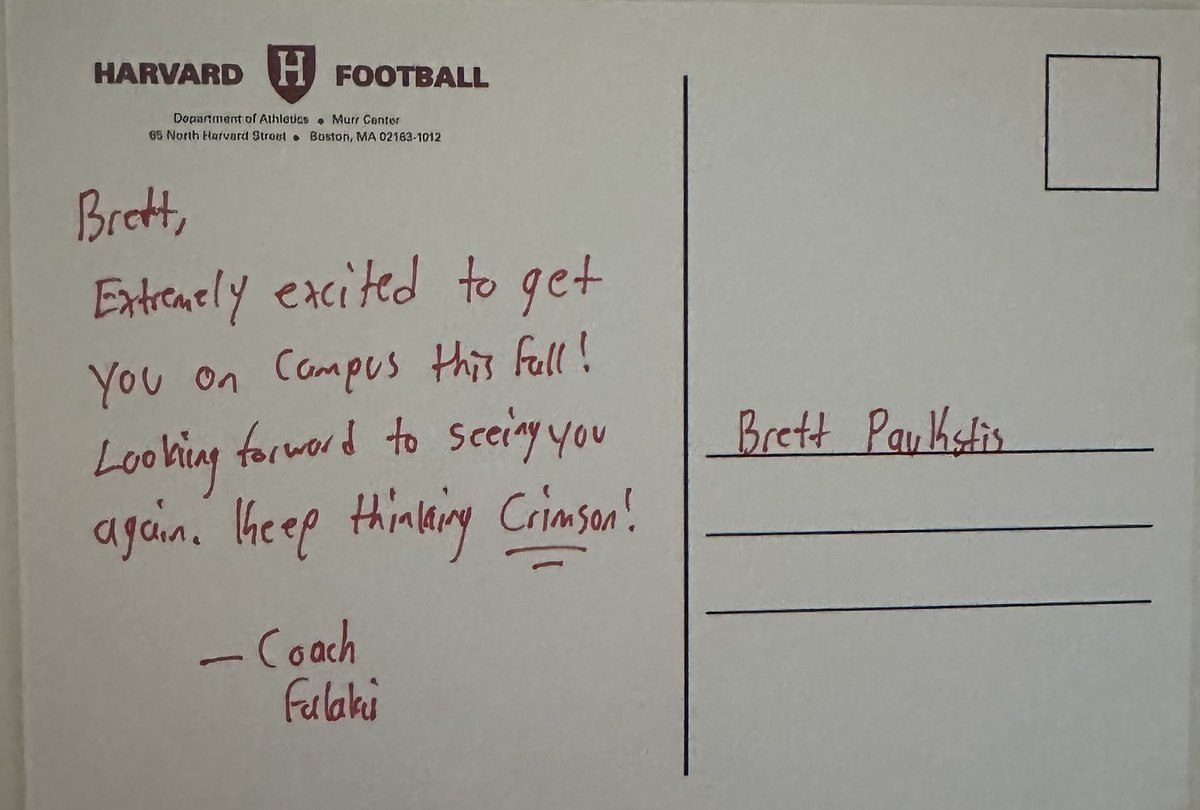 HARVARD H FOOTBALL
Department of Athletics • Murr Center
65 North Harvard Street • Boston, MA 02163-1012
Brett,
Extremely excited to get
you on campus this fall!
Looking forward to seeing you
again. Keep thinking Crimson!
— Coach
Falaki
Brett Paukstis